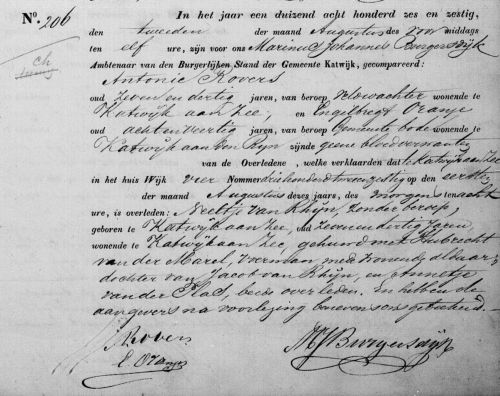 No. 206
In het jaar een duizend acht honderd zes en zestig,
den tweeden der maand Augustus des voormiddags
ten elf ure, zijn voor ons Marinus Johannes Burgersdijk
Ambtenaar van den Burgerlijken Stand der Gemeente Katwijk, gecompareerd:
Antonie Rovers
oud zeven en dertig jaren, van beroep veldwachter wonende te
Katwijk aan Zee, en Engelbregt Oranje
oud acht en veertig jaren, van beroep Gemeente bode wonende te
Katwijk aan den Rijn zijnde geen bloedverwanten
van de Overledene, welke verklaarden dat te Katwijk aan Zee
in het huis Wijk vier Nommer drie honderd twee en zestig op den eersten
der maand Augustus dezes jaars, des morgens ten acht
ure, is overleden: Neeltje van Rhijn, zonder beroep,
geboren te Katwijk aan Zee, oud zeven en dertig Jaren,
wonende te Katwijk aan Zee, gehuwd met Huibrecht
van der Marel, voerman, mede wonende aldaar,
dochter van Jacob van Rhijn, en Annetje
van der Plas, beide overleden. En hebben de
aangevers na voorlezing benevens ons geteekend.
A Rovers
E. Oranje
MJBurgersdijk